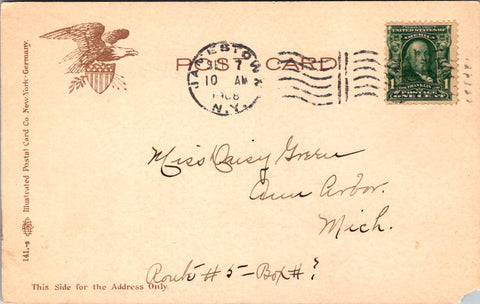 POST CARD
JAMESTOWN
7
10 AM
1908
N.Y.
UNITED STATES OF
AMERICA
1 1
ONE CENT
Miss Daisy Green
Ann Arbor.
Mich.
Route #5 - Box #?
This Side for the Address Only
141-2 Illustrated Postal Card Co. New York-Germany.